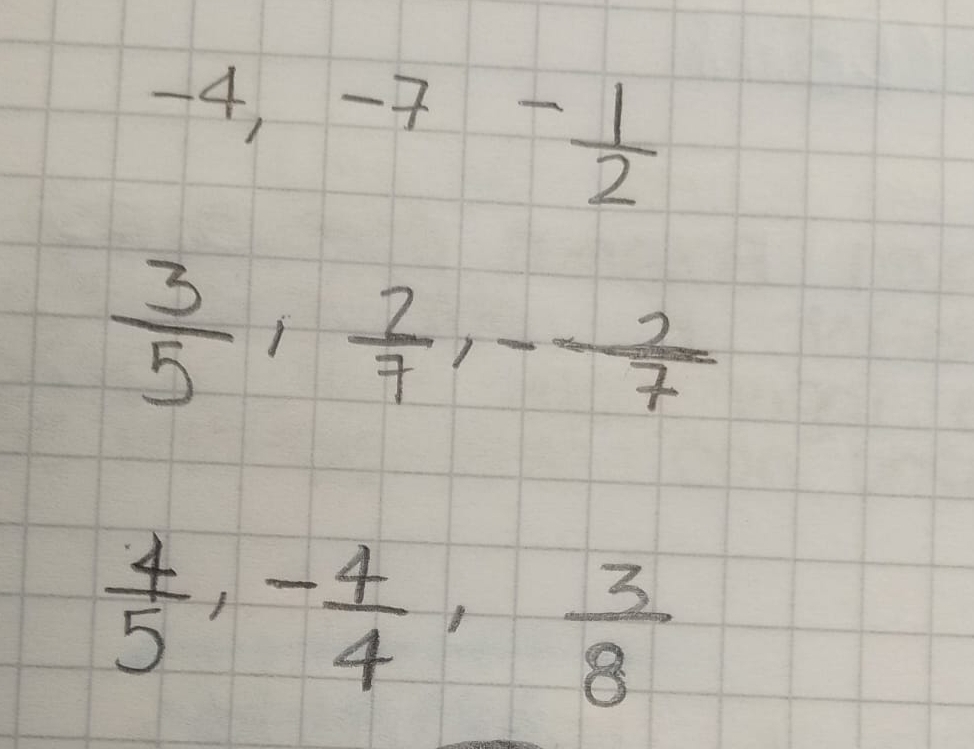 -4, -7 -1/2
3/5, 2/7, -2/7
4/5, -4/4, 3/8